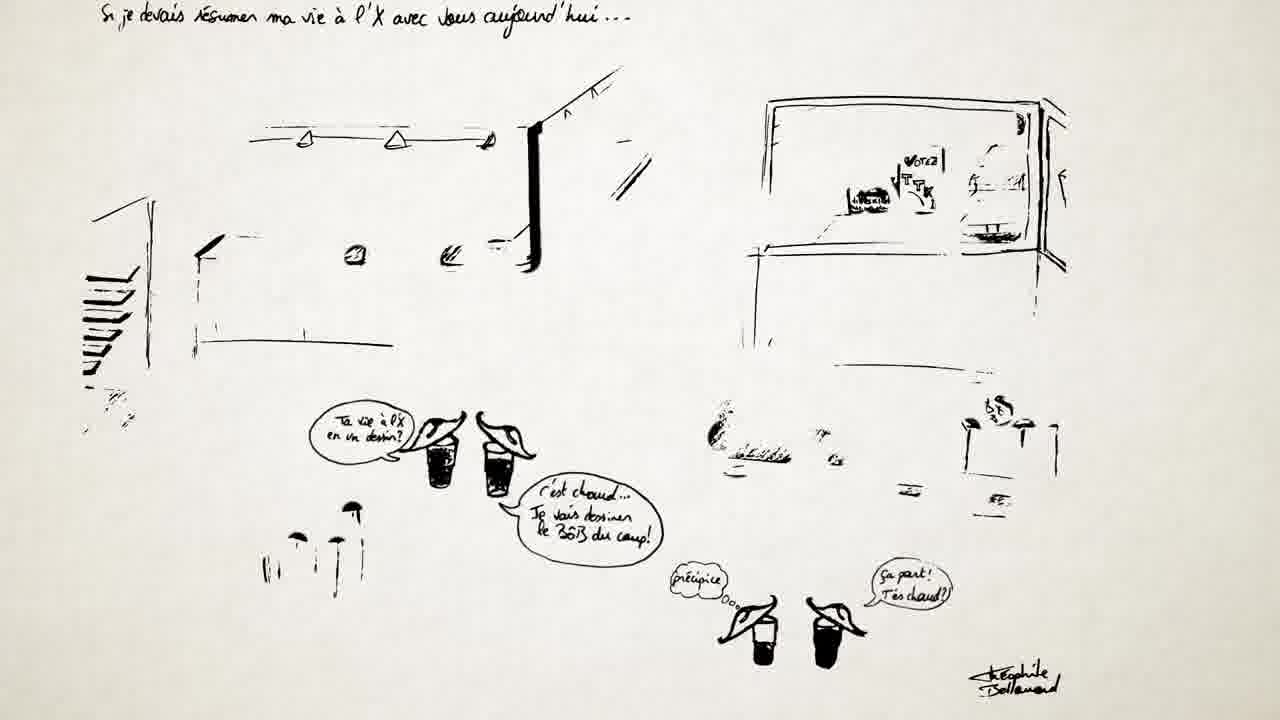 Si je devais résumer ma vie à l'X avec vous aujourd'hui...
VOTEZ
TTK
Ta vie à l'X
en un dessin?
C'est chaud...
Je vais dessiner
le BôB du coup!
précipice
Ça part!
T'es chaud?!
Théophile